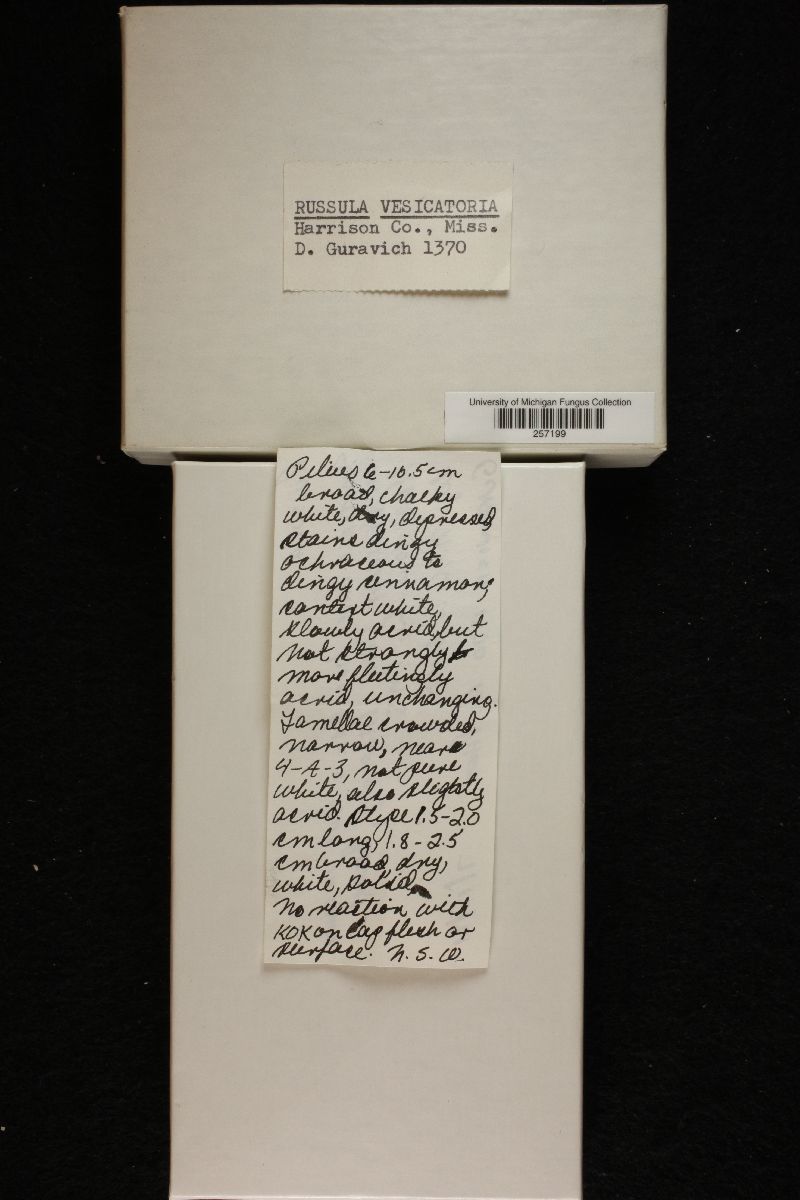 RUSSULA VESICATORIA
Harrison Co., Miss.
D. Guravich 1370
University of Michigan Fungus Collection
257199
Pileus 6-10.5 cm
broad, chalky
white, dry, depressed,
stains dingy
ochraceous to
dingy cinnamon,
context white,
slowly acrid, but
not strongly
more fleetingly
acrid, unchanging.
Lamellae crowded,
narrow, near
4-A-3, not pure
white, also slightly
acrid. Stipe 1.5-2.0
cm long, 1.8-2.5
cm broad, dry,
white, solid,
no reaction with
KOH on cap flesh or
surface. N. S. W.